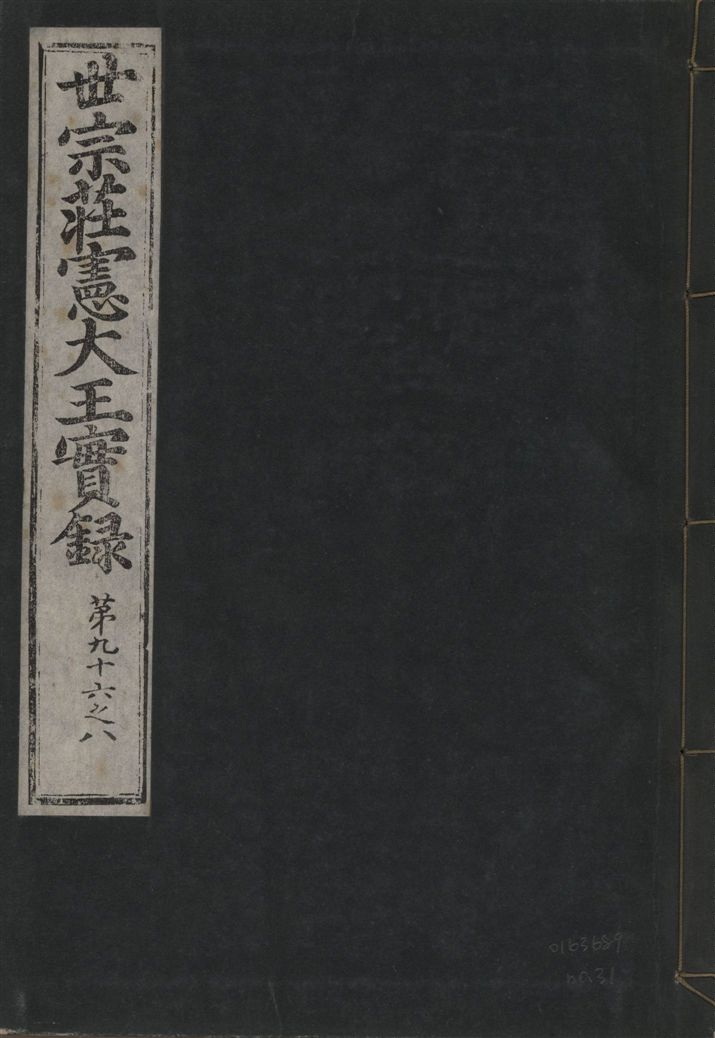 世宗莊憲大王實録
苐九十六之八
0163689
no.31